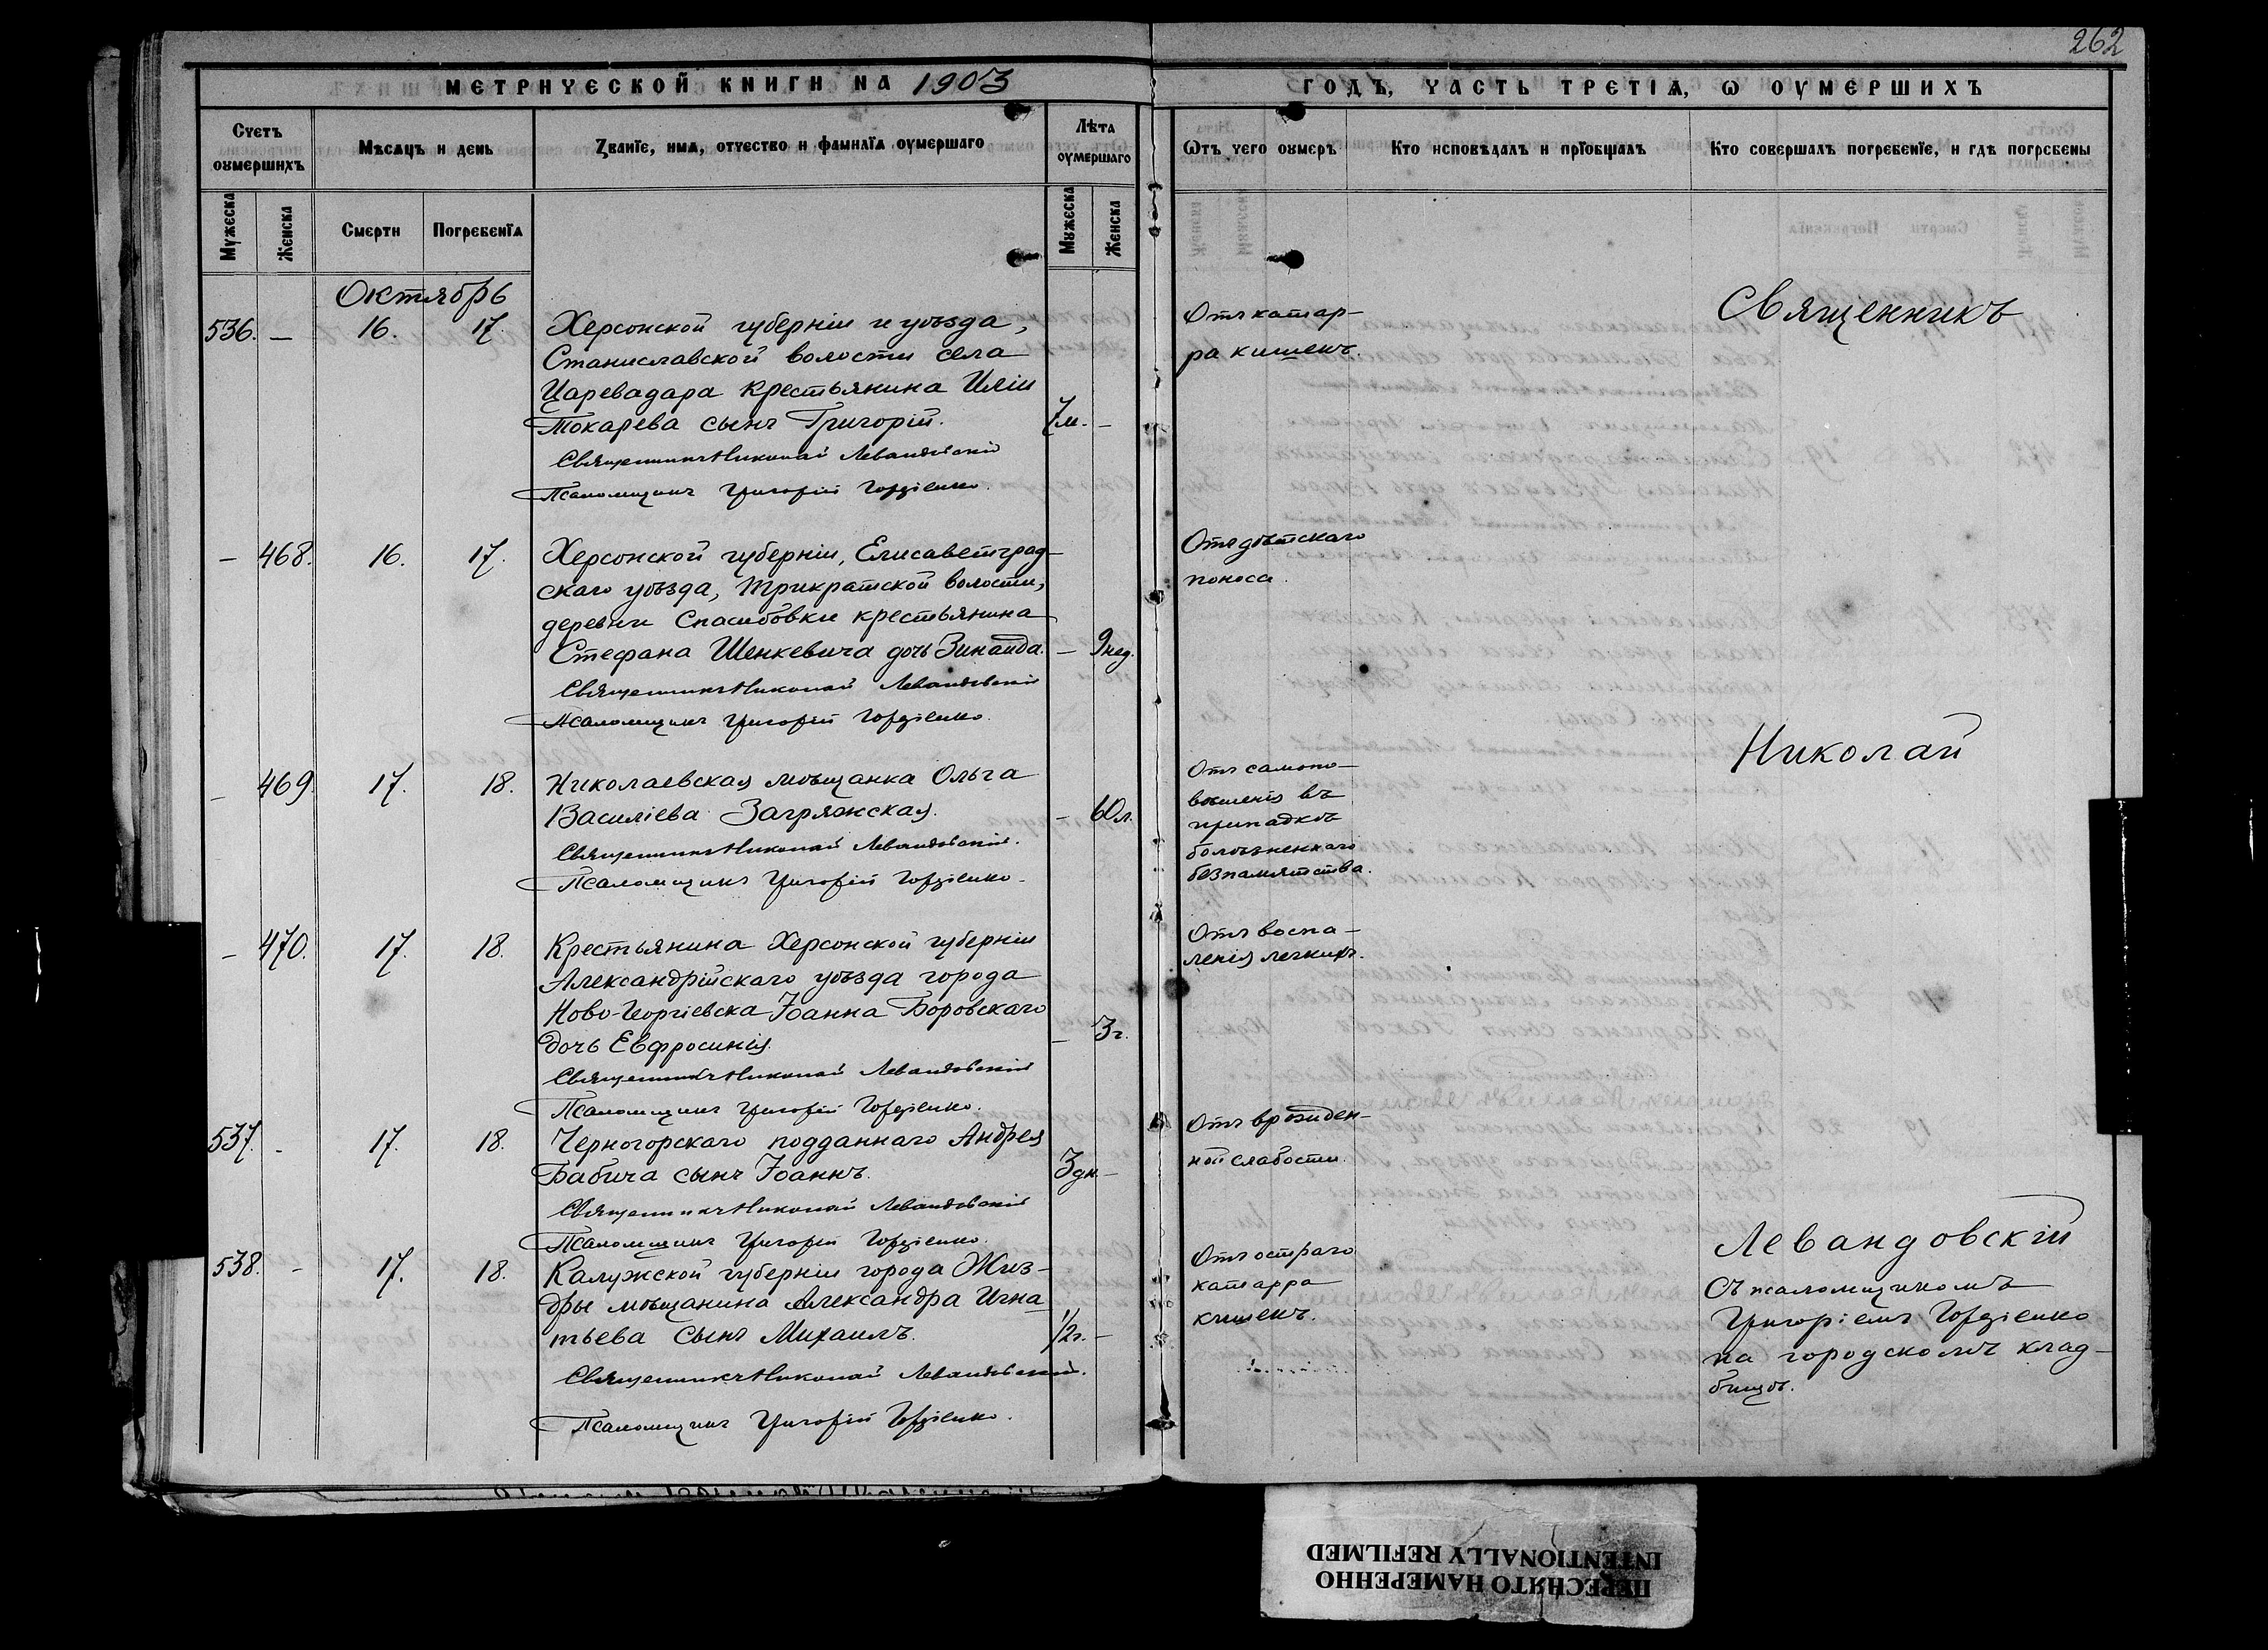 262
МЕТРИЧЕСКОЙ КНИГИ НА 1903 ГОДЪ, ЧАСТЬ ТРЕТІѦ, Ѡ ОУМЕРШИХЪ
Счетъ оумершихъ
Мѣсѧцъ и день
Званїе, имѧ, отчество и фамилїѧ оумершаго
Лѣта оумершаго
Ѿтъ чего оумеръ
Кто исповѣдалъ и прїобщалъ
Кто совершалъ погребенїе, и гдѣ погребены
Мужеска
Женска
Смерти
Погребенїѧ
Мужеска
Женска
Октябрь
536. — 16. 17. Херсонской губерніи и уѣзда,
Станиславской волости села
Царевадара крестьянина Иліи
Токарева сынъ Григорій. 7 м. —
Священникъ Николай Левандовскій
Псаломщикъ Григорій Гордіенко.
Отъ катар-
ра кишекъ.
— 468. 16. 17. Херсонской губерніи, Елисаветград-
скаго уѣзда, Трикратской волости,
деревни Спасибовки крестьянина
Стефана Шенкевича дочь Зинаида. — 9 нед.
Священникъ Николай Левандовскій
Псаломщикъ Григорій Гордіенко.
Отъ дѣтскаго
поноса.
— 469. 17. 18. Николаевская мѣщанка Ольга
Василіева Загряжская. — 60 л.
Священникъ Николай Левандовскій.
Псаломщикъ Григорій Гордіенко.
Отъ самопо-
вѣшенія въ
припадкѣ
болѣзненнаго
безпамятства.
— 470. 17. 18. Крестьянина Херсонской губерніи
Александрійскаго уѣзда города
Ново-Георгіевска Іоанна Боровскаго
дочь Евфросинія — 3 г.
Священникъ Николай Левандовскій
Псаломщикъ Григорій Гордіенко.
Отъ воспа-
ленія легкихъ.
537. — 17. 18. Черногорскаго подданнаго Андрея
Бабича сынъ Іоаннъ. 3 дн. —
Священникъ Николай Левандовскій
Псаломщикъ Григорій Гордіенко.
Отъ врожден-
ной слабости.
538. — 17. 18. Калужской губерніи города Жиз-
дры мѣщанина Александра Игна-
тьева сынъ Михаилъ. 1/2 г. —
Священникъ Николай Левандовскій.
Псаломщикъ Григорій Гордіенко.
Отъ остраго
катарра
кишекъ.
Священникъ
Николай
Левандовскій
съ псаломщикомъ
Григоріемъ Гордіенко
на городскомъ клад-
бищѣ.
ПЕРЕСНЯТО НАМЕРЕННО
INTENTIONALLY REFILMED